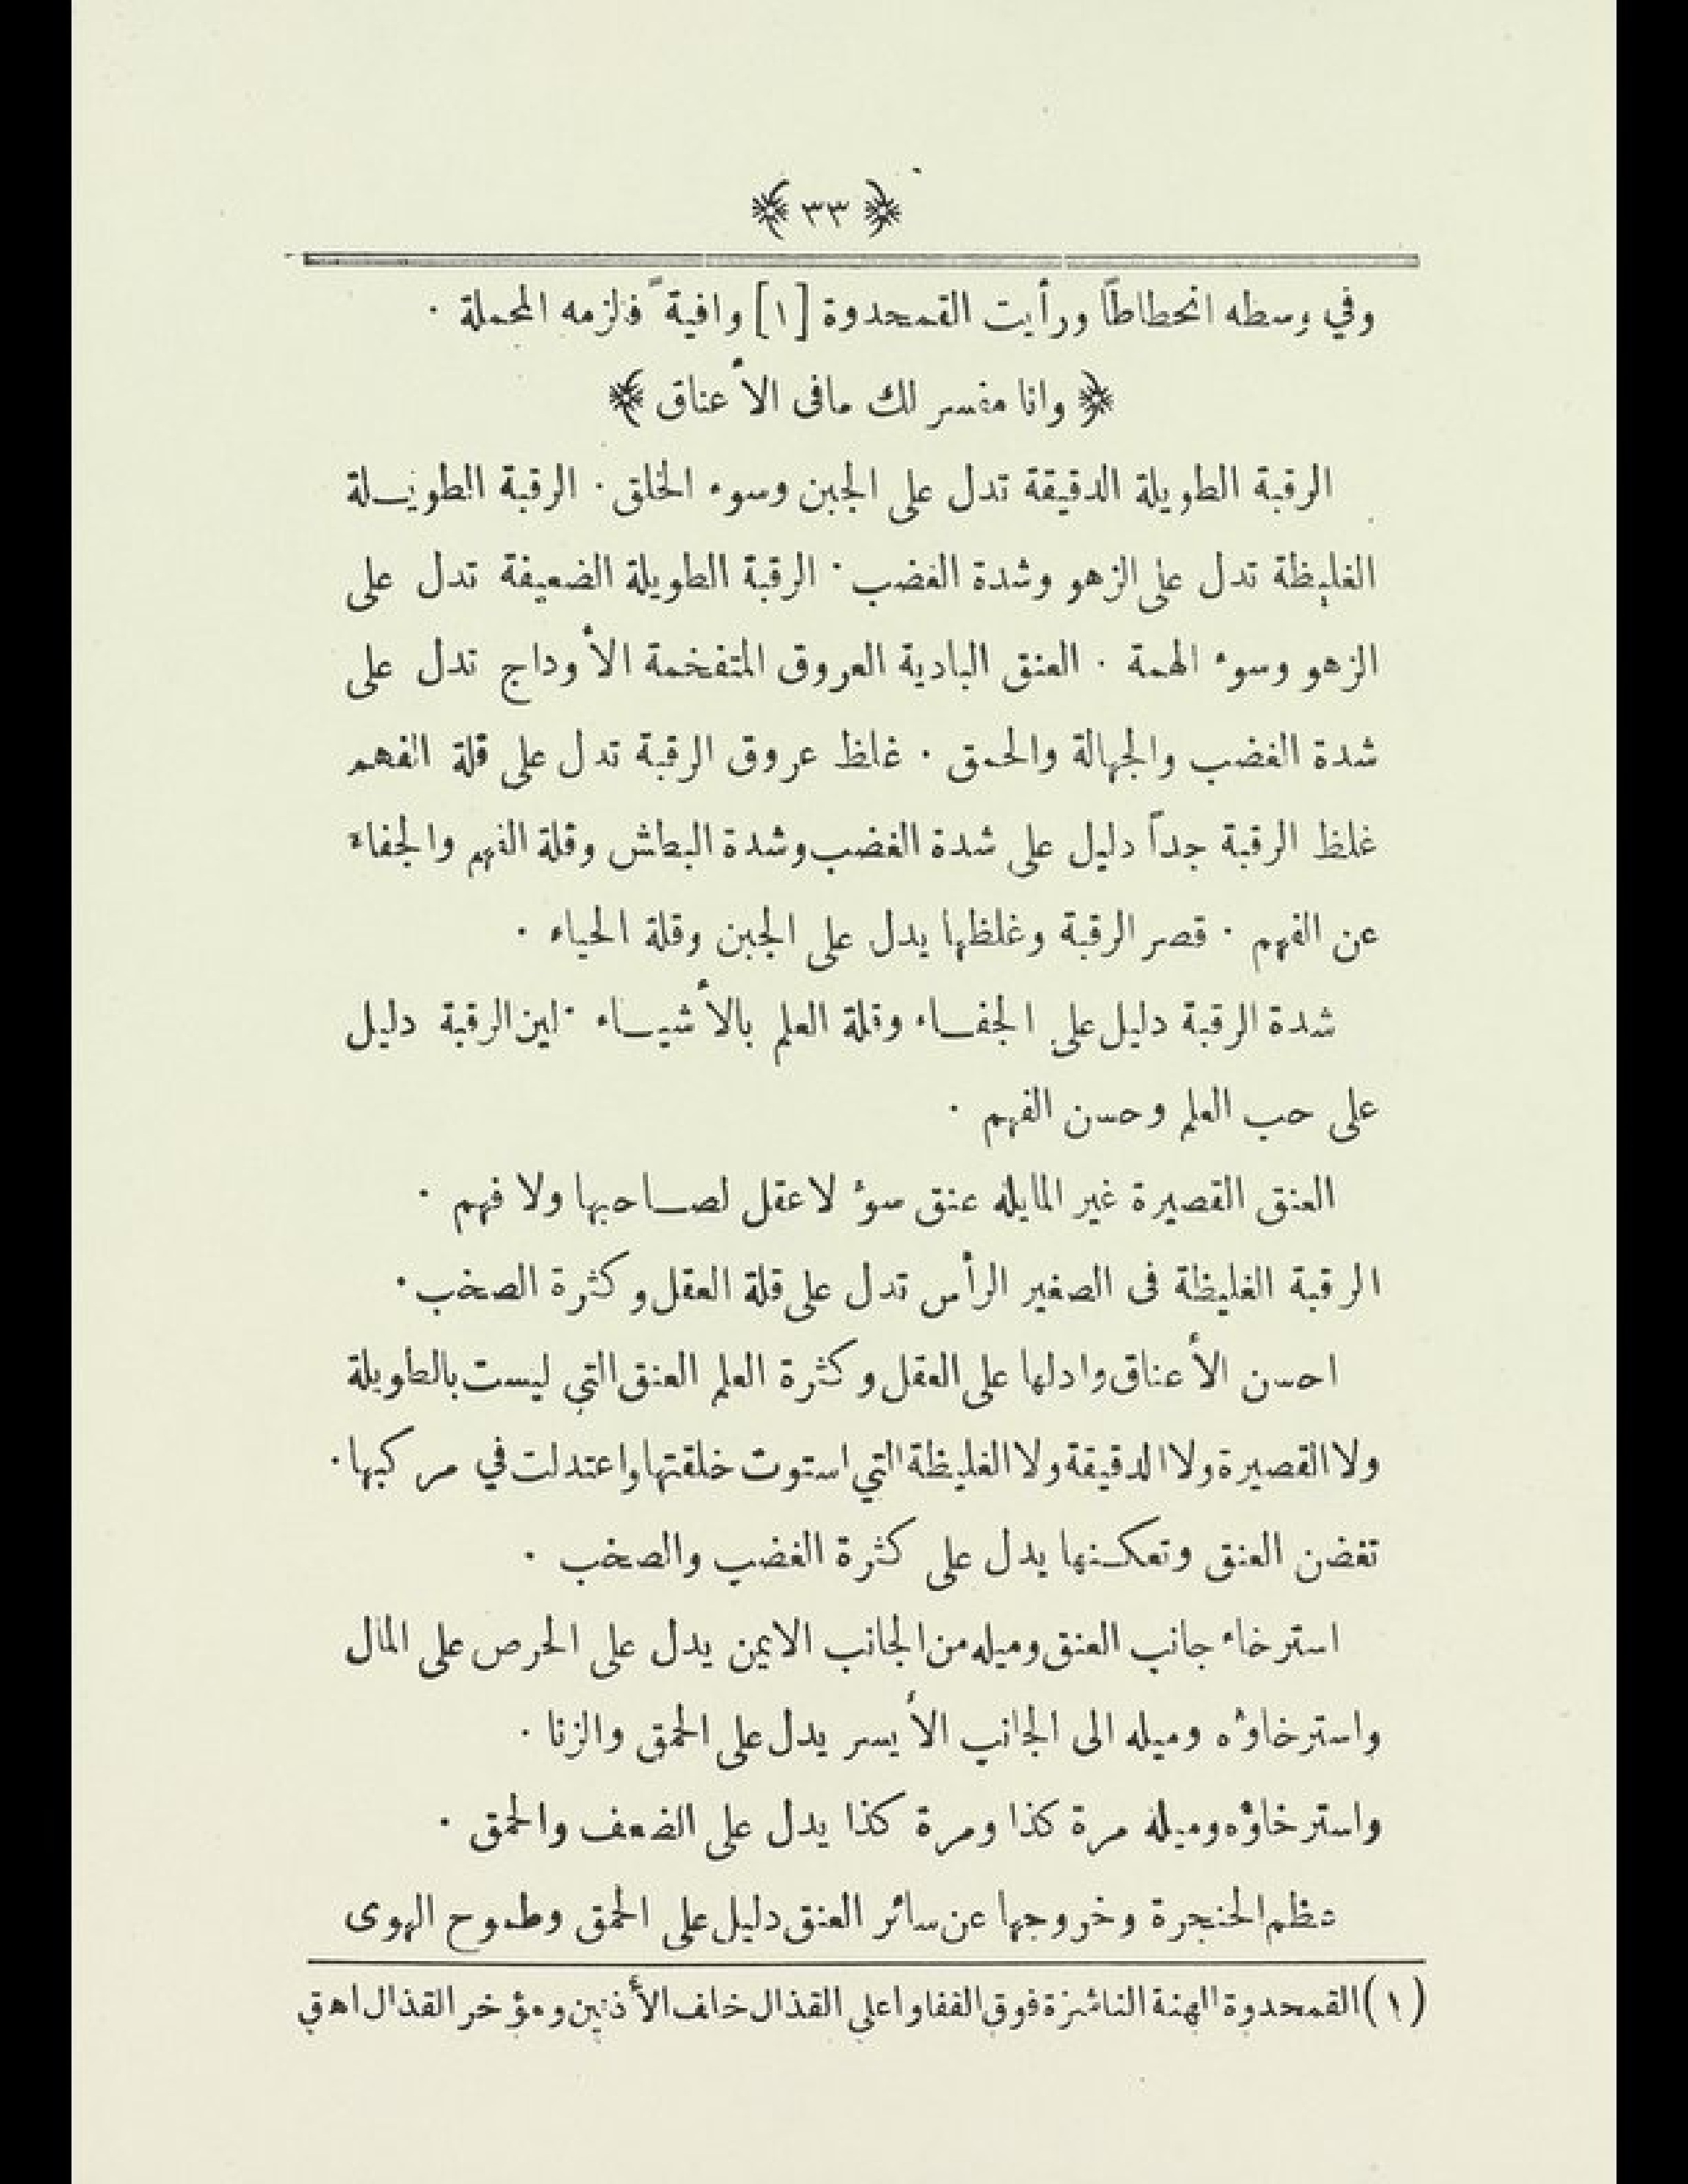 ﴿ ٣٣ ﴾
وفي وسطه انحطاطاً ورأيت القمحدوة [١] وافيةً فالزمه المحملة ٠
﴿ وانا مفسر لك مافى الأعناق ﴾
الرقبة الطويلة الدقيقة تدل على الجبن وسوء الخلق ٠ الرقبة الطويـلة
الغليظة تدل على الزهو وشدة الغضب ٠ الرقبة الطويلة الضعيفة تدل على
الزهو وسوء الهمة ٠ العنق البادية العروق المتفخمة الأوداج تدل على
شدة الغضب والجهالة والحمق ٠ غلظ عروق الرقبة تدل على قلة الفهم
غلظ الرقبة جداً دليل على شدة الغضب وشدة البطش وقلة الفهم والجفاء
عن الفهم ٠ قصر الرقبة وغلظها يدل على الجبن وقلة الحياء ٠
شدة الرقبة دليل على الجفـاء وقلة العلم بالأشيـاء ٠ لين الرقبة دليل
على حب العلم وحسن الفهم ٠
العنق القصيرة غير المايله عنق سوء لا عقل لصـاحبها ولا فهم ٠
الرقبة الغليظة فى الصغير الرأس تدل على قلة العقل وكثرة الصخب ٠
احسن الأعناق وادلها على العقل وكثرة العلم العنق التي ليست بالطويلة
ولا القصيرة ولا الدقيقة ولا الغليظة التي استوت خلقتها واعتدلت في مركبها ٠
تغضن العنق وتعكـنها يدل على كثرة الغضب والصخب ٠
استرخاء جانب العنق وميله من الجانب الايمن يدل على الحرص على المال
واسترخاؤه وميله الى الجانب الأيسر يدل على الحمق والزنا ٠
واسترخاؤه وميله مرة كذا ومرة كذا يدل على الضعف والحمق ٠
عظم الحنجرة وخروجها عن سائر العنق دليل على الحمق وطموح الهوى
(١) القمحدوة الهنة الناشزة فوق القفا واعلى القذال خلف الأذنين ومؤخر القذال اه ق